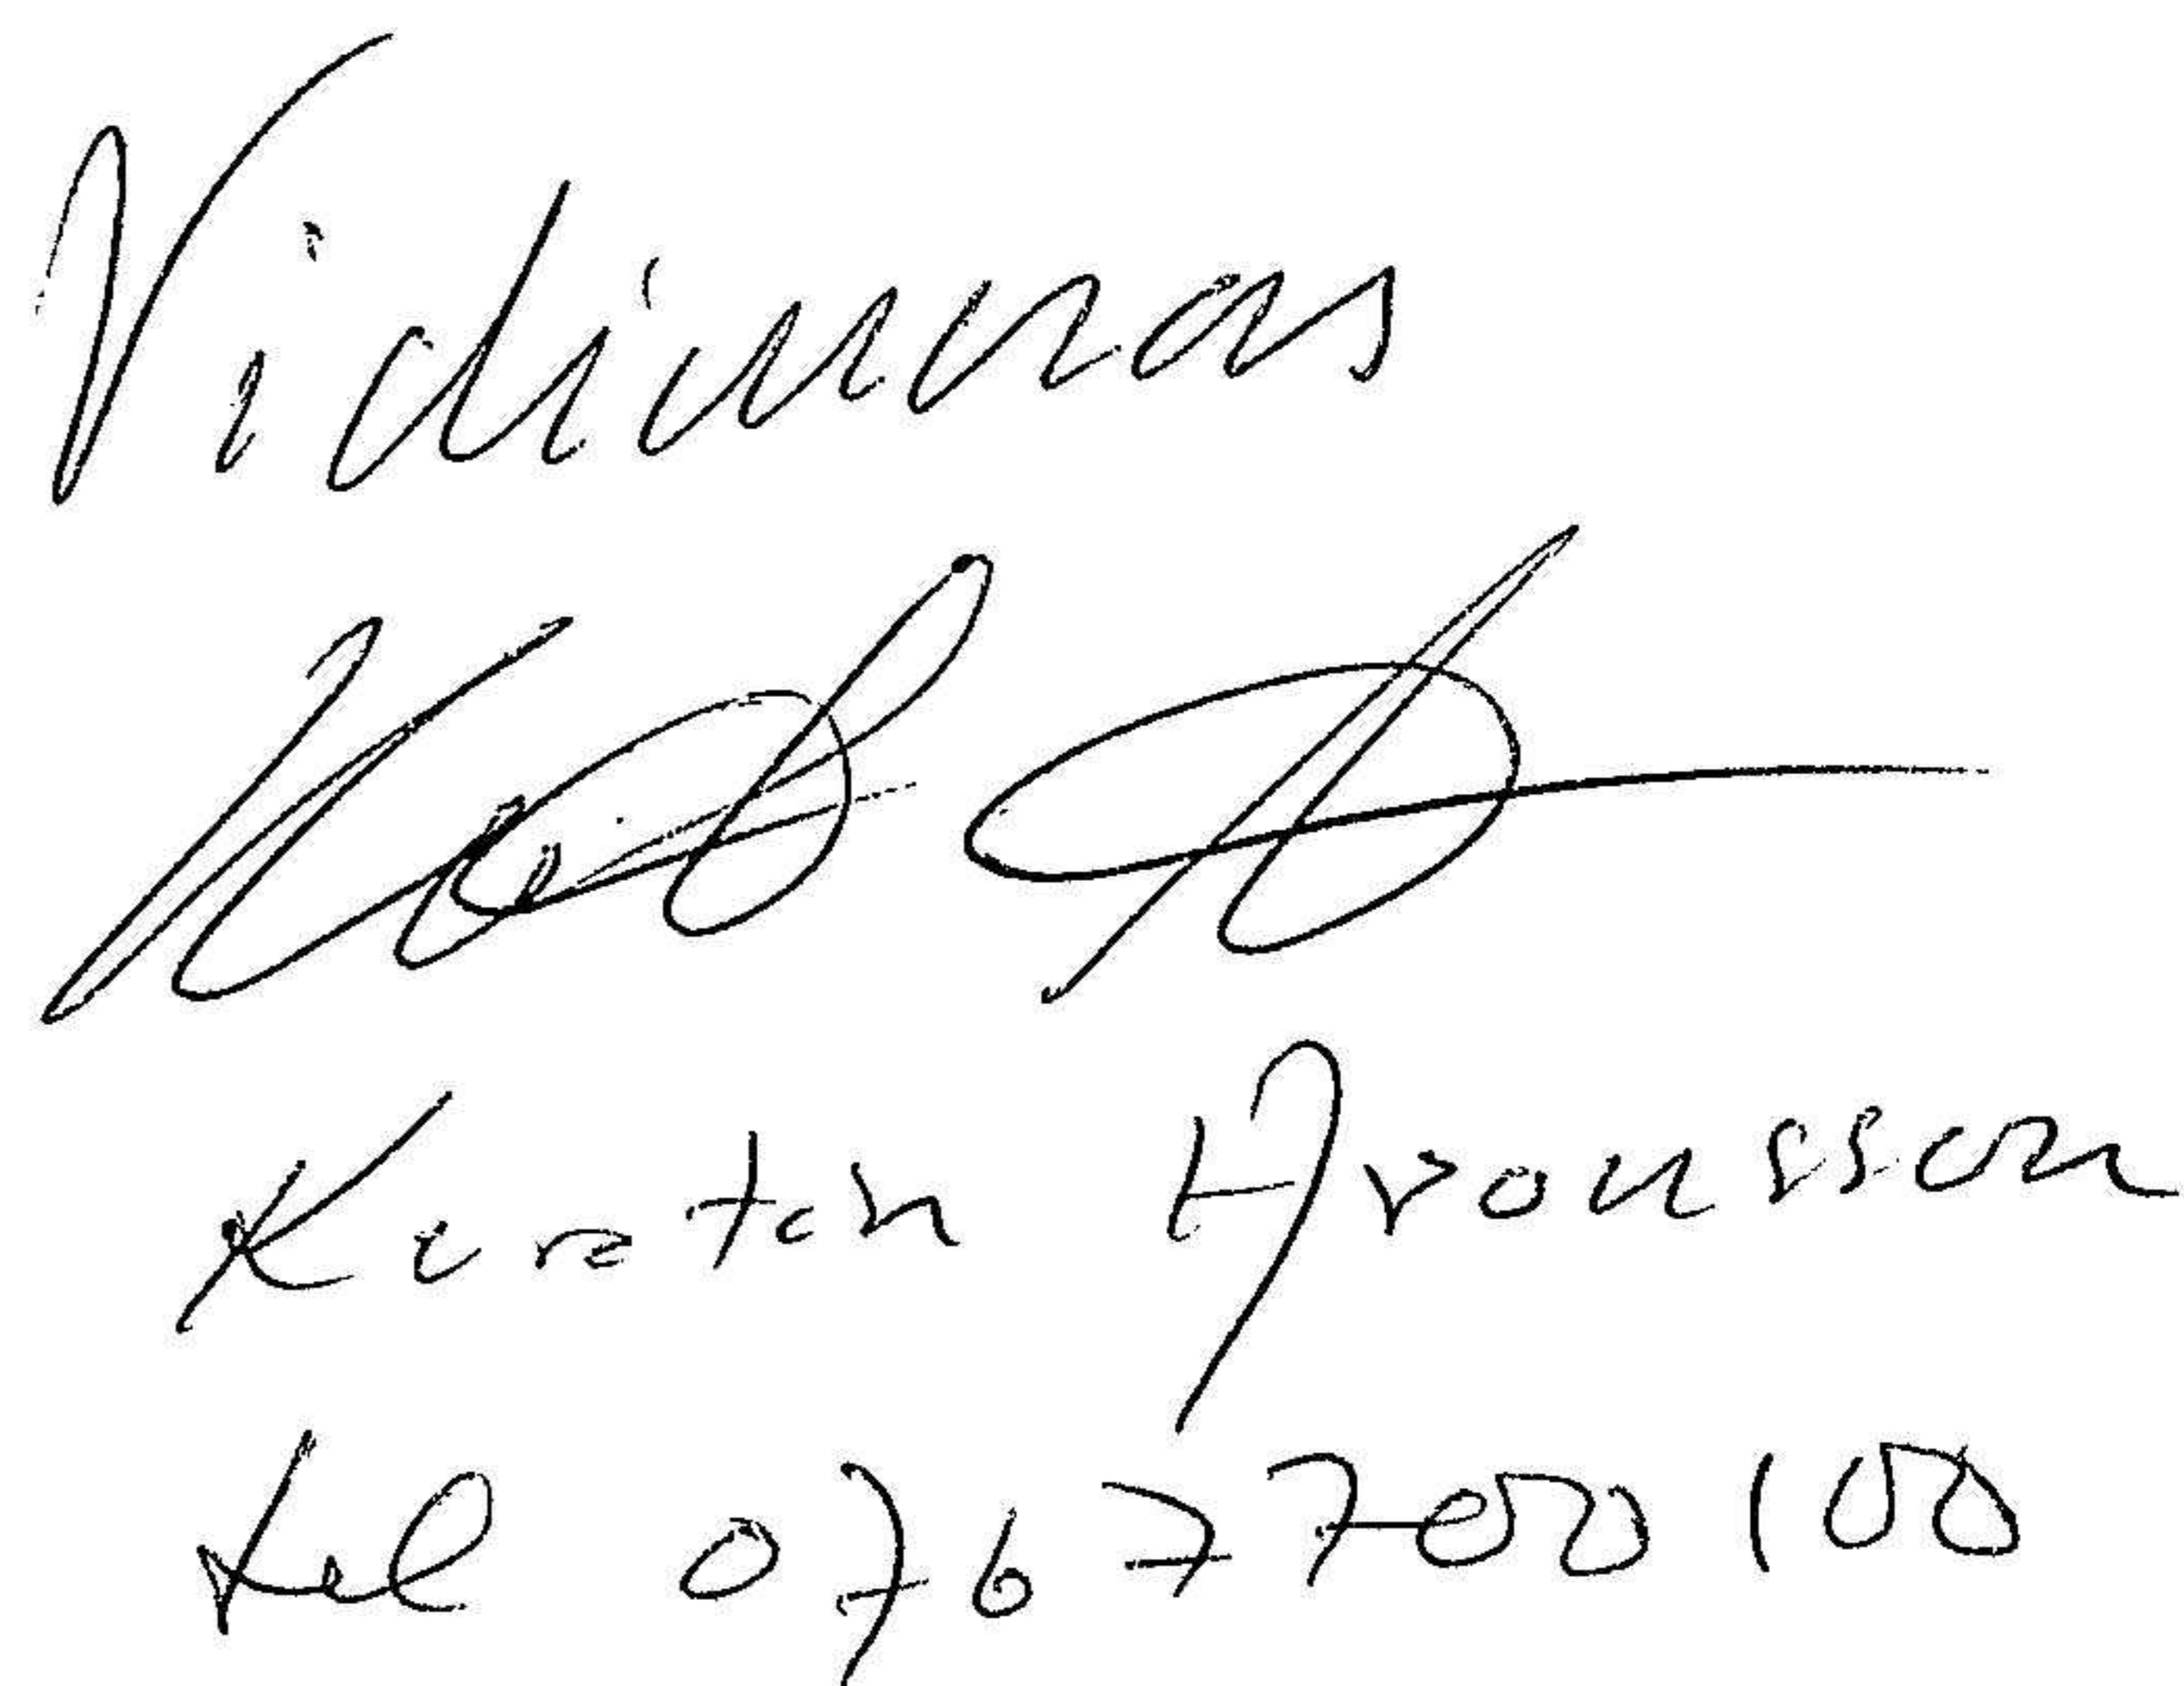 Vidimeras
Kersten Aronsson
tel 0767700100